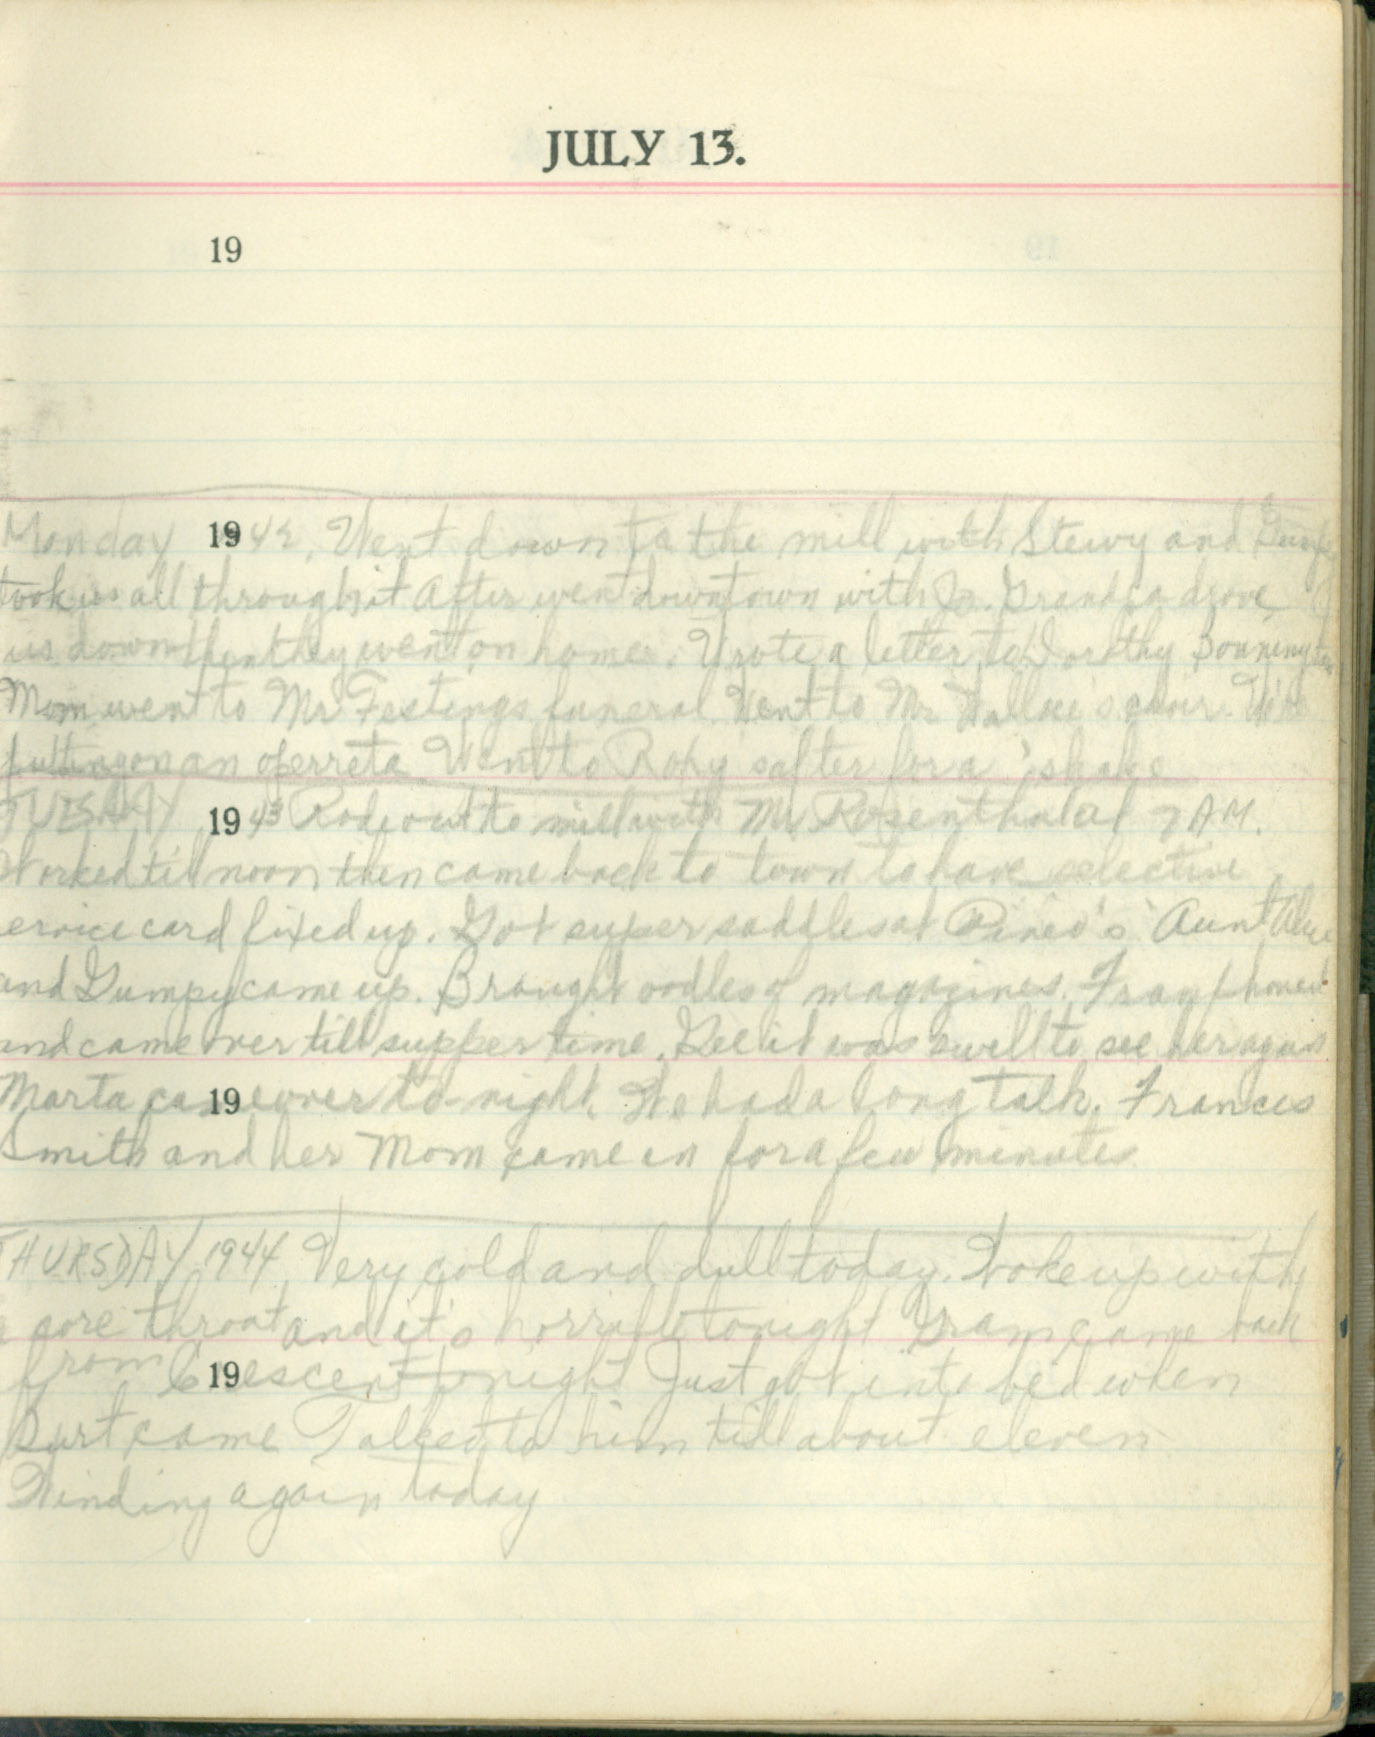 JULY 13.
19
Monday 1942. Went down to the mill with Stewy and
took us all through it After went downtown with Jo. Grandpa drove
us down then they went on home. Wrote a letter to Dorothy
Mom went to Mr Festings funeral. Went to Mr Wallace's choir. We're
putting on an operreta Went to Roxy's after for a 'shake
TUESDAY 1943 Rode out to mill with Mr Rosenthal at 7 AM.
Worked til noon then came back to town to have selective
ervice card fixed up. Got super saddles at Pineo's Aunt Alice
and Gumpy came up. Brought oodles of magazines. Fran phoned
and came over till supper time. Gee it was swell to see her again
19
Marta came over to-night. We had a long talk. Frances
Smith and her Mom came in for a few minutes
THURSDAY 1944 Very cold and dull today. Woke up with
sore throat and it's horrible tonight Gram came back
19
from Crescent tonight Just got into bed when
Burt came Talked to him till about eleven
Winding again today